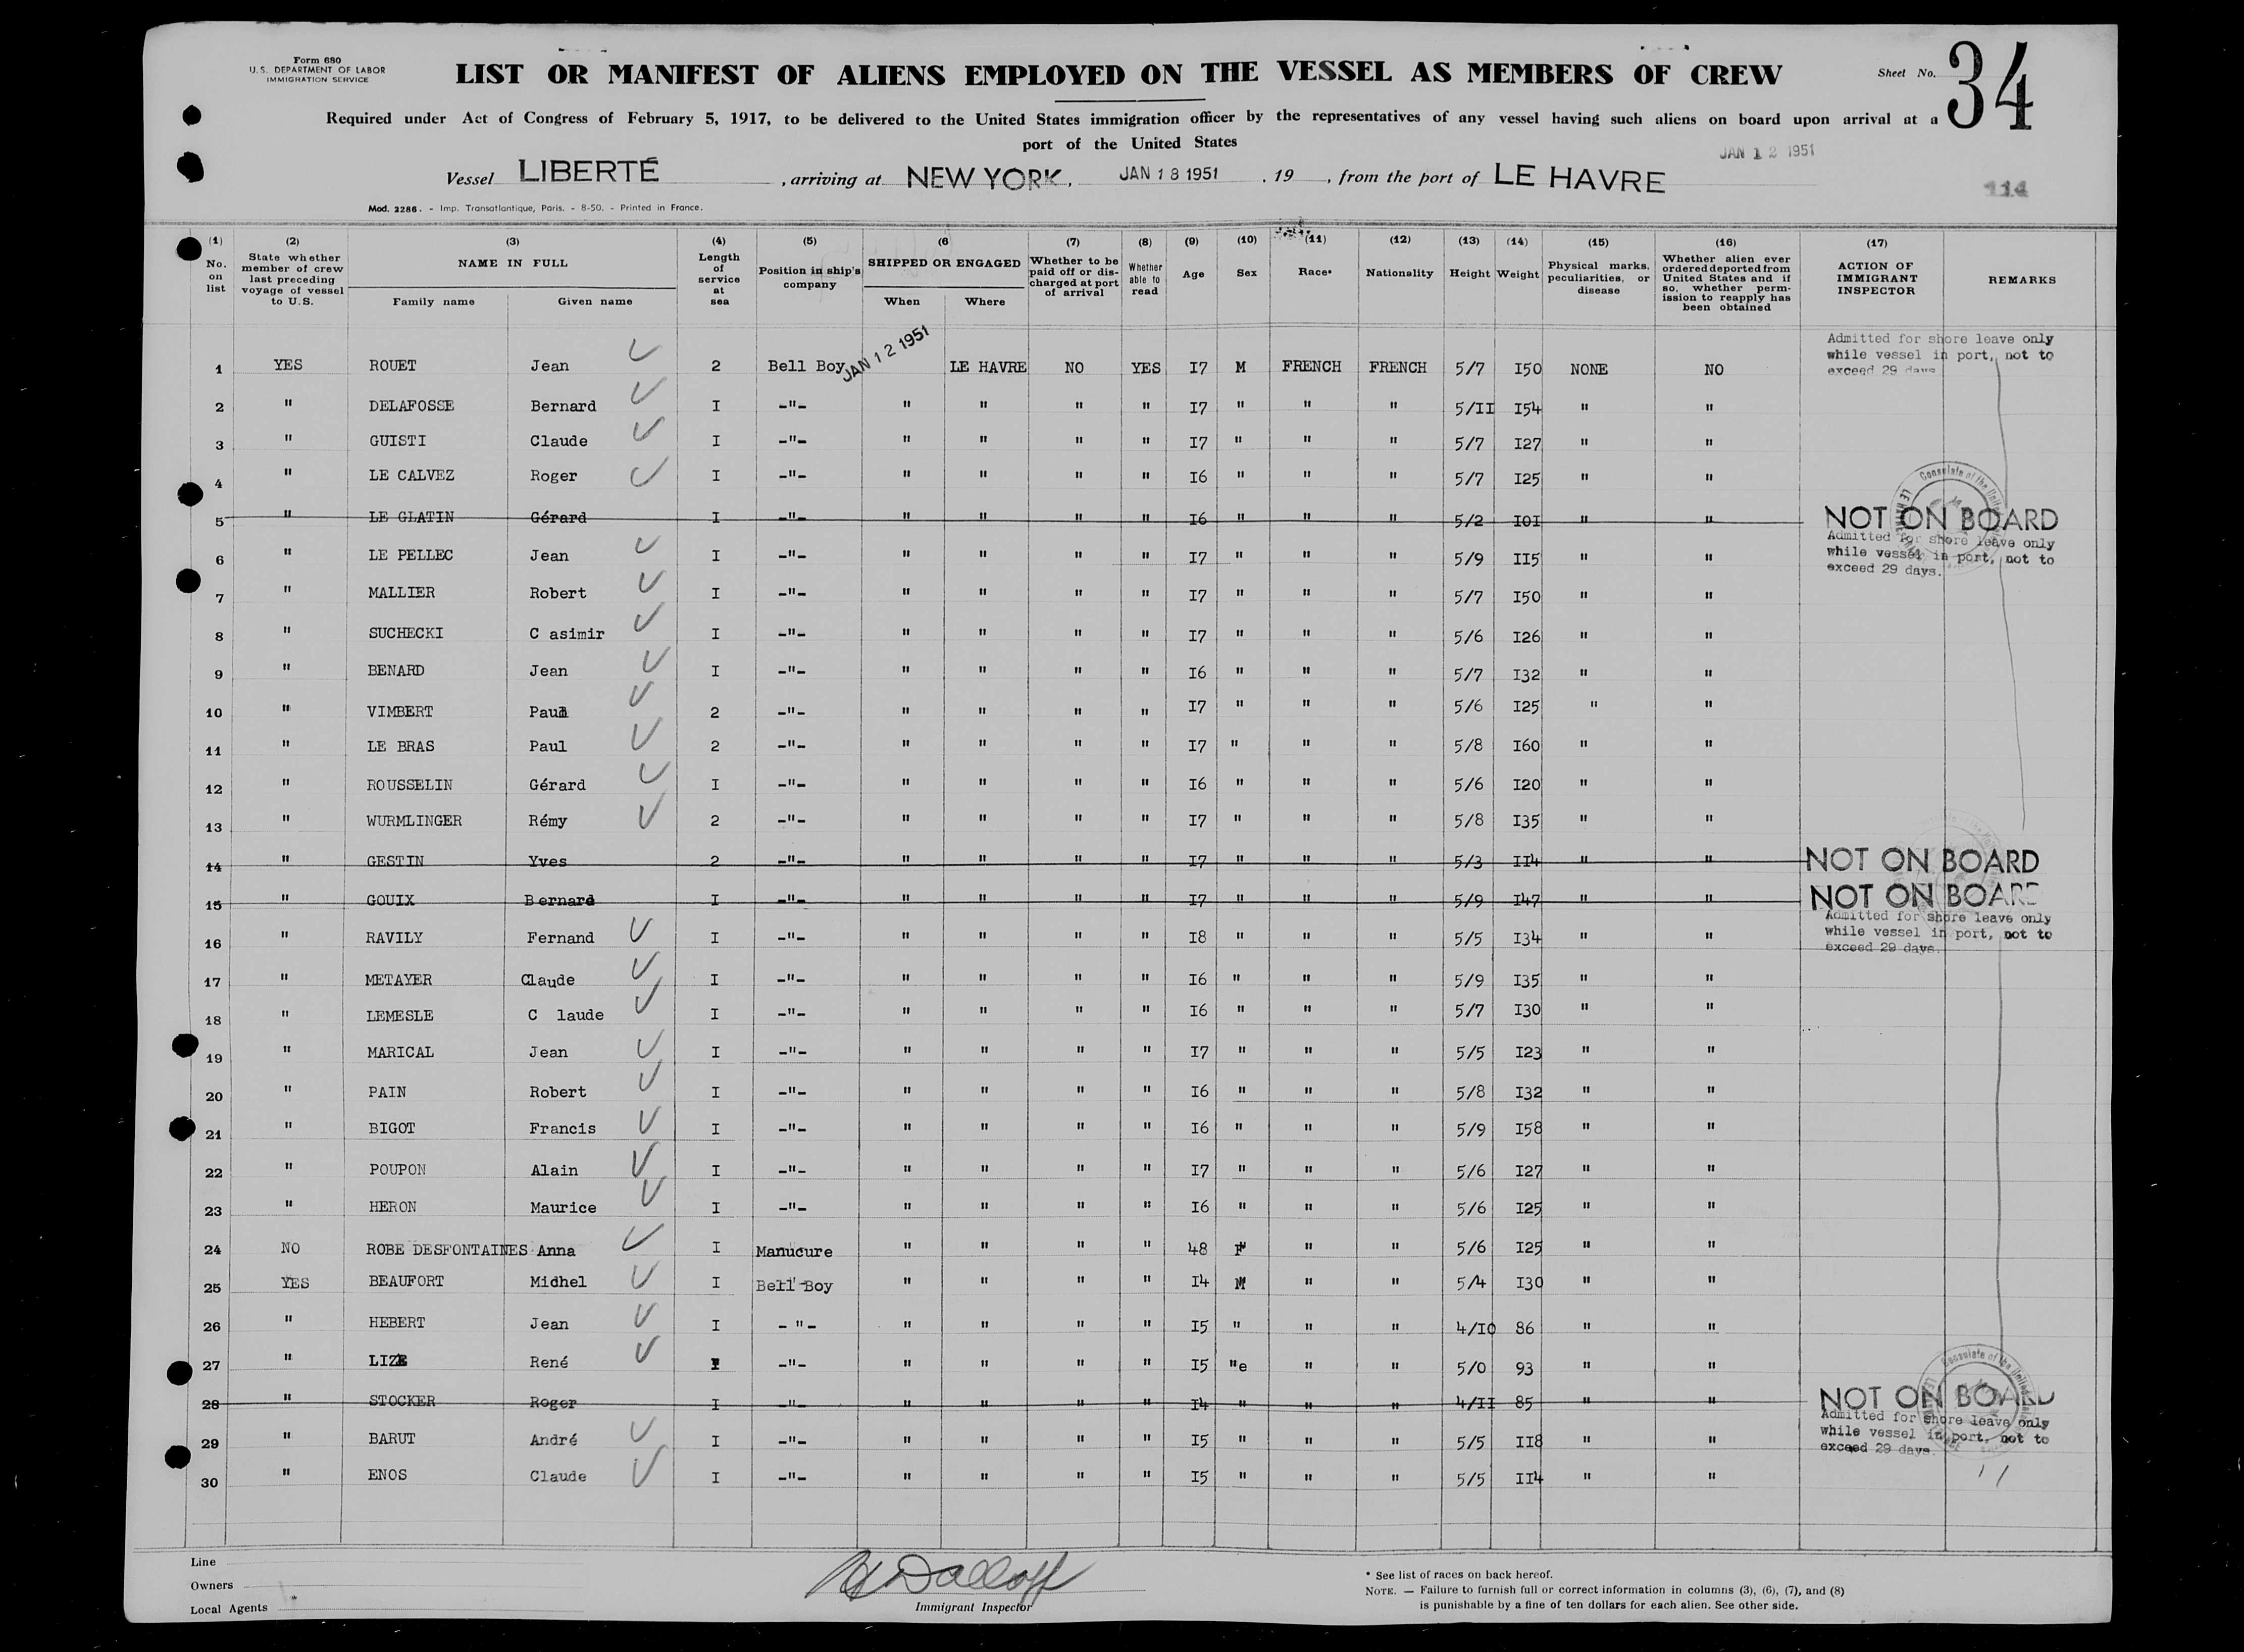 Form 680
U. S. DEPARTMENT OF LABOR
IMMIGRATION SERVICE
LIST OR MANIFEST OF ALIENS EMPLOYED ON THE VESSEL AS MEMBERS OF CREW
Sheet No. 34
Required under Act of Congress of February 5, 1917, to be delivered to the United States immigration officer by the representatives of any vessel having such aliens on board upon arrival at a
port of the United States
JAN 12 1951
Vessel LIBERTÉ , arriving at NEW YORK, JAN 18 1951 , 19 , from the port of LE HAVRE
114
Mod. 2286. - Imp. Transatlantique, Paris. - 8-50. - Printed in France.
(1) No. on list
(2) State whether member of crew last preceding voyage of vessel to U.S.
(3) NAME IN FULL Family name Given name
(4) Length of service at sea
(5) Position in ship's company
(6 SHIPPED OR ENGAGED When Where
(7) Whether to be paid off or discharged at port of arrival
(8) Whether able to read
(9) Age
(10) Sex
(11) Race*
(12) Nationality
(13) Height
(14) Weight
(15) Physical marks, peculiarities, or disease
(16) Whether alien ever ordered deported from United States and if so, whether permission to reapply has been obtained
(17) ACTION OF IMMIGRANT INSPECTOR
REMARKS
Admitted for shore leave only
while vessel in port, not to
exceed 29 days
1 YES ROUET Jean 2 Bell Boy JAN 12 1951 LE HAVRE NO YES I7 M FRENCH FRENCH 5/7 I50 NONE NO
2 " DELAFOSSE Bernard I -"- " " " " I7 " " " 5/II I54 " "
3 " GUISTI Claude I -"- " " " " I7 " " " 5/7 I27 " "
4 " LE CALVEZ Roger I -"- " " " " I6 " " " 5/7 I25 " "
5 " LE GLATIN Gérard I -"- " " " " I6 " " " 5/2 I0I " " NOT ON BOARD
Admitted for shore leave only
while vessel in port, not to
exceed 29 days.
6 " LE PELLEC Jean I -"- " " " " I7 " " " 5/9 II5 " "
7 " MALLIER Robert I -"- " " " " I7 " " " 5/7 I50 " "
8 " SUCHECKI C asimir I -"- " " " " I7 " " " 5/6 I26 " "
9 " BENARD Jean I -"- " " " " I6 " " " 5/7 I32 " "
10 " VIMBERT Paul 2 -"- " " " " I7 " " " 5/6 I25 " "
11 " LE BRAS Paul 2 -"- " " " " I7 " " " 5/8 I60 " "
12 " ROUSSELIN Gérard I -"- " " " " I6 " " " 5/6 I20 " "
13 " WURMLINGER Rémy 2 -"- " " " " I7 " " " 5/8 I35 " "
14 " GESTIN Yves 2 -"- " " " " I7 " " " 5/3 II4 " " NOT ON BOARD
15 " GOUIX Bernard I -"- " " " " I7 " " " 5/9 I47 " " NOT ON BOARD
Admitted for shore leave only
while vessel in port, not to
exceed 29 days.
16 " RAVILY Fernand I -"- " " " " I8 " " " 5/5 I34 " "
17 " METAYER Claude I -"- " " " " I6 " " " 5/9 I35 " "
18 " LEMESLE C laude I -"- " " " " I6 " " " 5/7 I30 " "
19 " MARICAL Jean I -"- " " " " I7 " " " 5/5 I23 " "
20 " PAIN Robert I -"- " " " " I6 " " " 5/8 I32 " "
21 " BIGOT Francis I -"- " " " " I6 " " " 5/9 I58 " "
22 " POUPON Alain I -"- " " " " I7 " " " 5/6 I27 " "
23 " HERON Maurice I -"- " " " " I6 " " " 5/6 I25 " "
24 NO ROBE DESFONTAINES Anna I Manucure " " " " 48 F " " 5/6 I25 " "
25 YES BEAUFORT Midhel I Bell Boy " " " " I4 M " " 5/4 I30 " "
26 " HEBERT Jean I - "- " " " " I5 " " " 4/I0 86 " "
27 " LIZE René I -"- " " " " I5 "e " " 5/0 93 " "
28 " STOCKER Roger I -"- " " " " I4 " " " 4/II 85 " " NOT ON BOARD
Admitted for shore leave only
while vessel in port, not to
exceed 29 days.
29 " BARUT André I -"- " " " " I5 " " " 5/5 II8 " "
30 " ENOS Claude I -"- " " " " I5 " " " 5/5 II4 " "
Line
Owners
Local Agents
Immigrant Inspector
* See list of races on back hereof.
NOTE. — Failure to furnish full or correct information in columns (3), (6), (7), and (8)
is punishable by a fine of ten dollars for each alien. See other side.